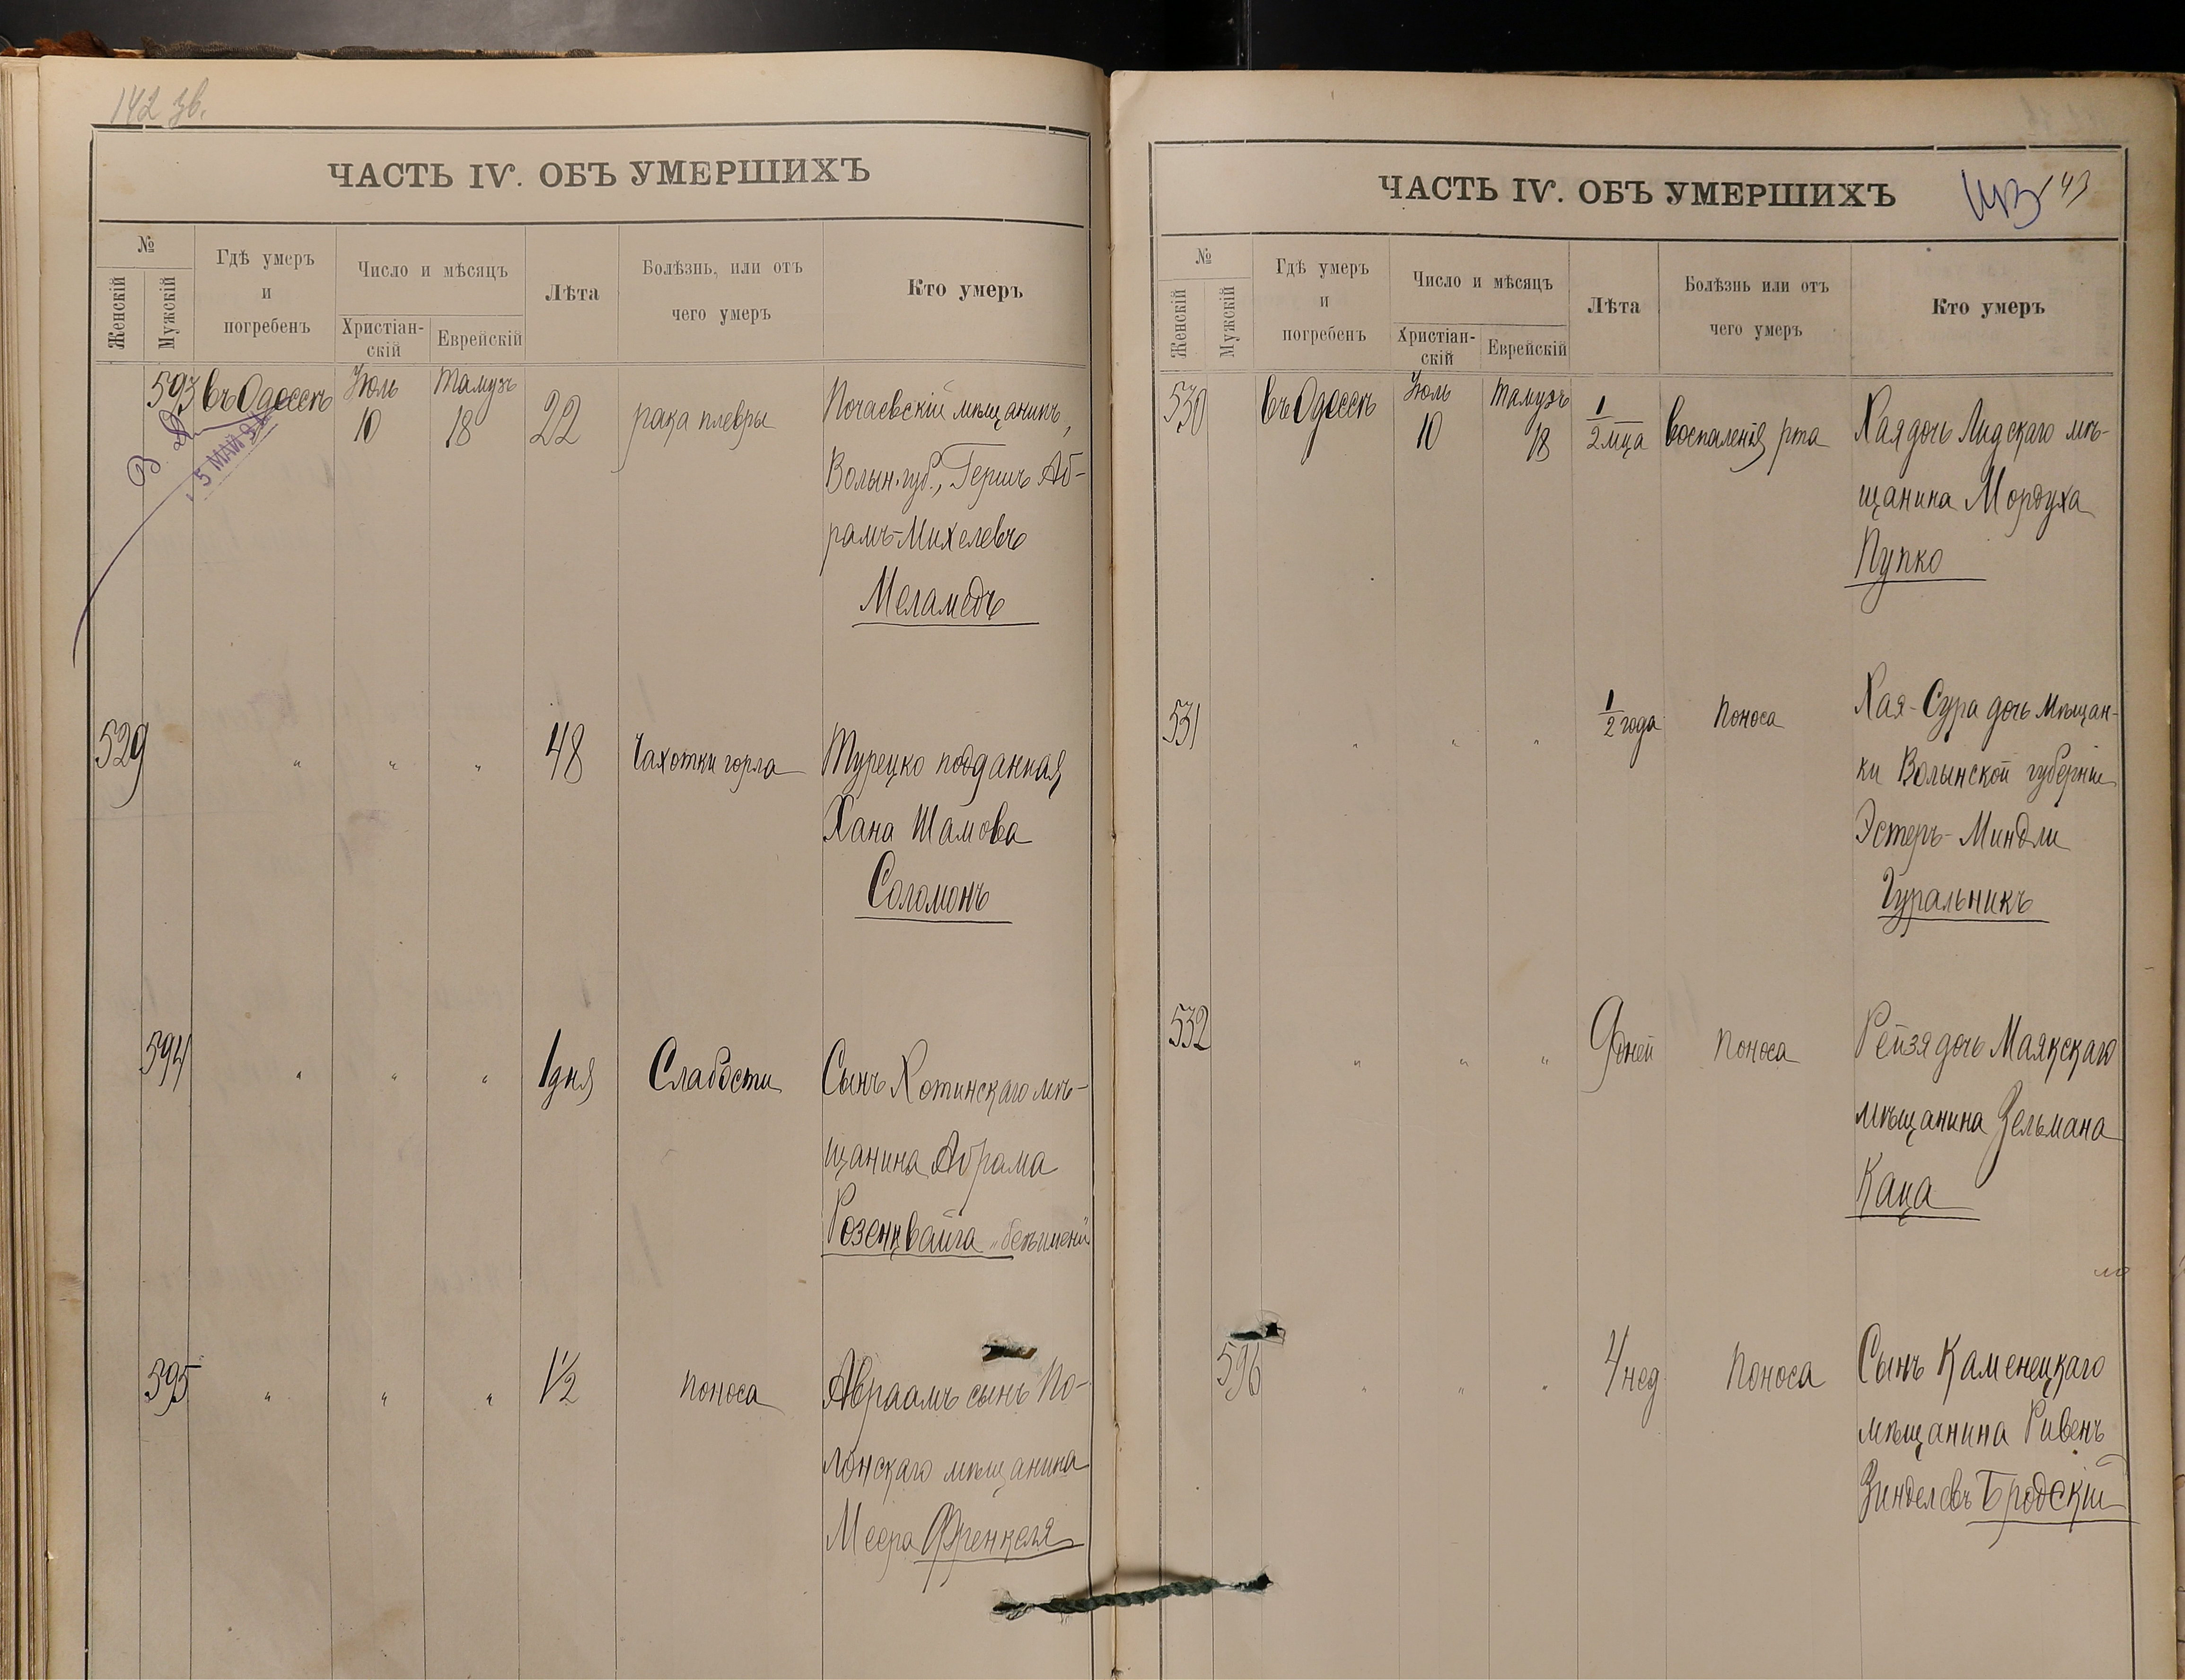 142 зв.
ЧАСТЬ IV. ОБЪ УМЕРШИХЪ
№
Женскій
Мужскій
Гдѣ умеръ
и
погребенъ
Число и мѣсяцъ
Христіан-
скій
Еврейскій
Лѣта
Болѣзнь, или отъ
чего умеръ
Кто умеръ
593 въ Одессѣ Іюль 10 Тамузъ 18 22 рака плевры Почаевскій мѣщанинъ,
Волын. губ., Гершъ Аб-
рамъ-Михелевъ
Меламедъ
5 МАЙ 92
529 " " " 48 Чахотки горла Турецко подданная
Хана Шамова
Соломонъ
594 " " " 1 дня Слабости Сынъ Хотинскаго мѣ-
щанина Абрама
Розенцвайга
595 " " " 1½ поноса Авраамъ сынъ По-
лонскаго мѣщанина
Меера Френкеля
ЧАСТЬ IV. ОБЪ УМЕРШИХЪ
143
№
Женскій
Мужскій
Гдѣ умеръ
и
погребенъ
Число и мѣсяцъ
Христіан-
скій
Еврейскій
Лѣта
Болѣзнь или отъ
чего умеръ
Кто умеръ
530 въ Одессѣ Іюль 10 Тамузъ 18 1/2 мца воспаленія рта Хая дочь Лидскаго мѣ-
щанина Мордуха
Пупко
531 " " " 1/2 года поноса Хая-Сура дочь мѣщан-
ки Волынской губерніи
Эстеръ-Миндли
Гуральникъ
532 " " " 9 дней поноса Рейзя дочь Маякскаго
мѣщанина Зельмана
Каца
596 " " " 4 нед. поноса Сынъ Каменецкаго
мѣщанина Ривенъ
Зинделевъ Бродскій